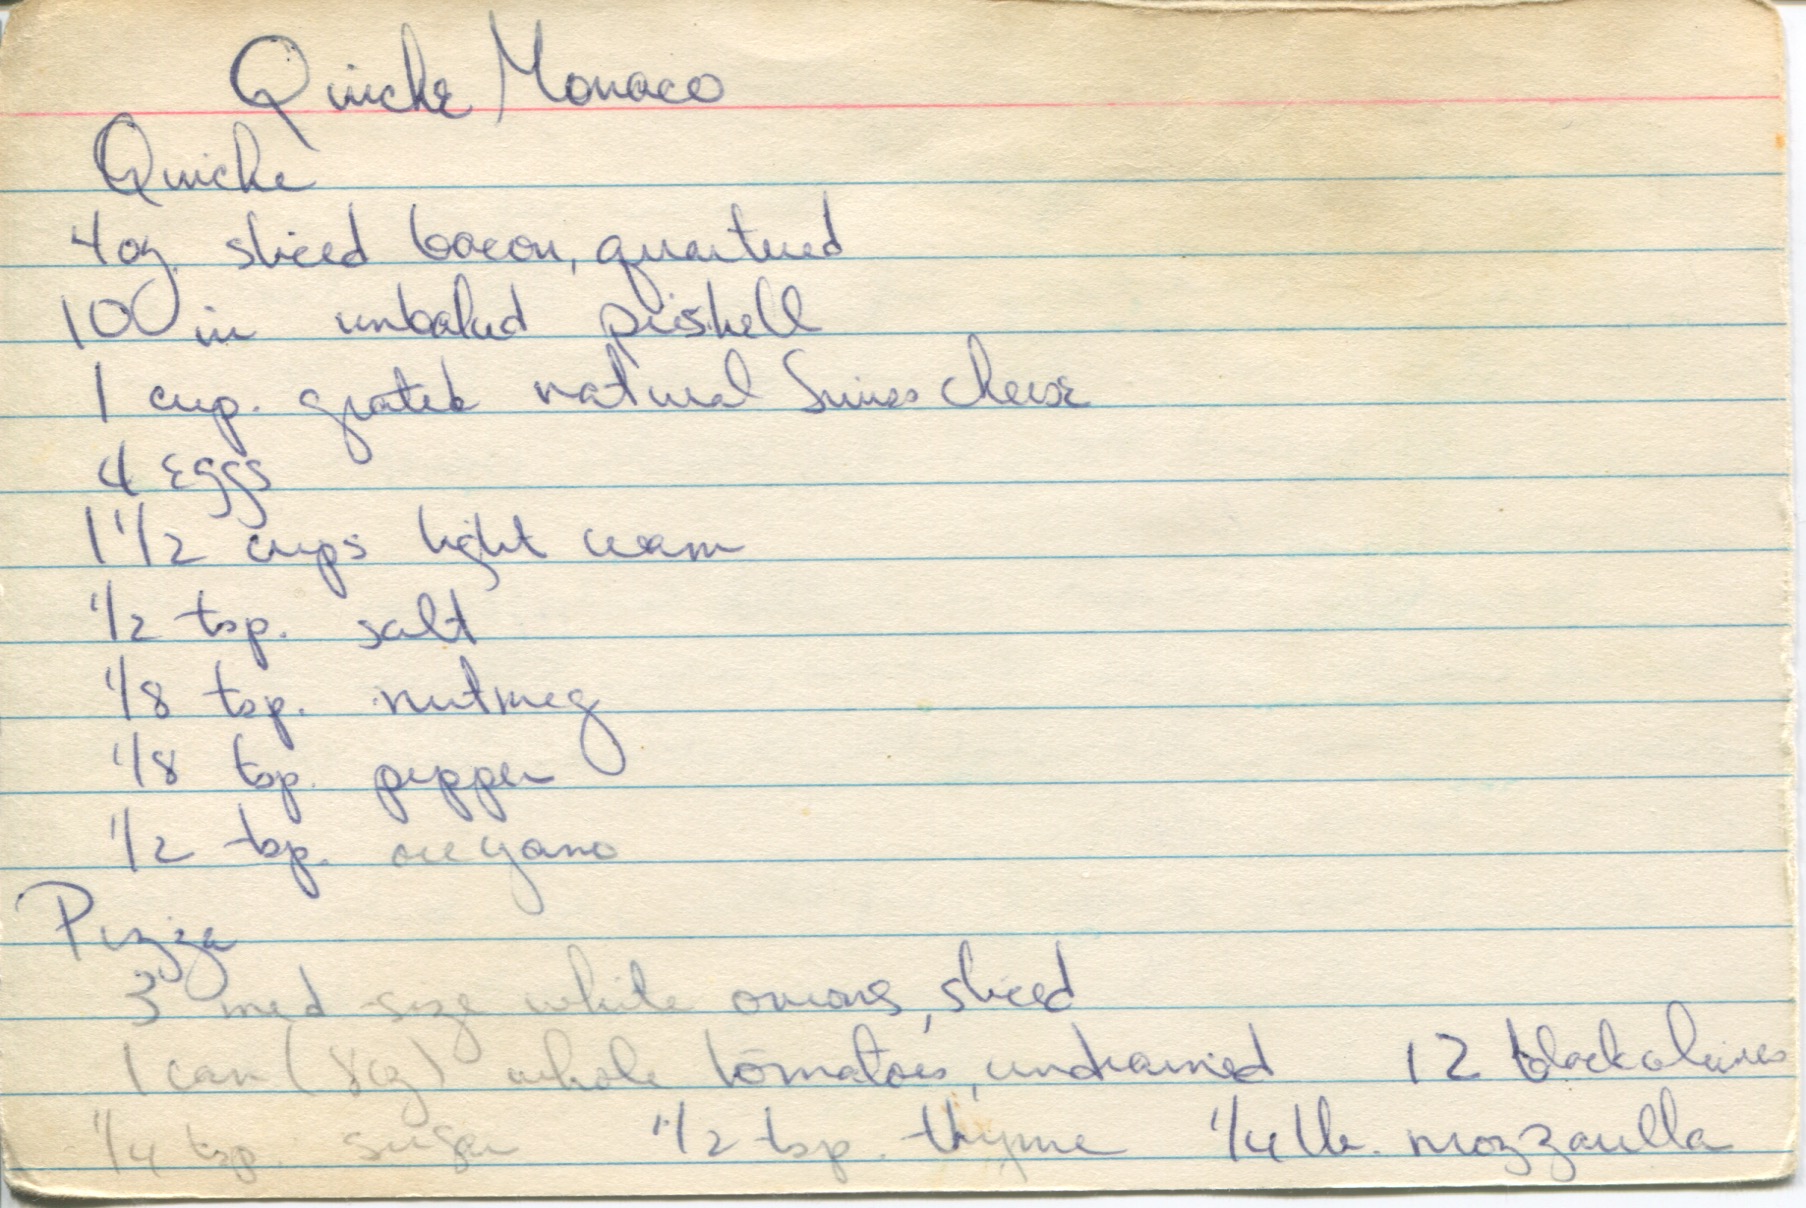 Quiche Monaco
Quiche
4 oz. sliced bacon, quartered
10 in unbaked pieshell
1 cup. grated natural Swiss cheese
4 Eggs
1 1/2 cups light cream
1/2 tsp. salt
1/8 tsp. nutmeg
1/8 tsp. pepper
1/2 tsp. oregano
Pizza
3 med size white onions, sliced
1 can (8oz) whole tomatoes, undrained 12 black olives
1/4 tsp. sugar 1/2 tsp. thyme 1/4 lb. mozzarella